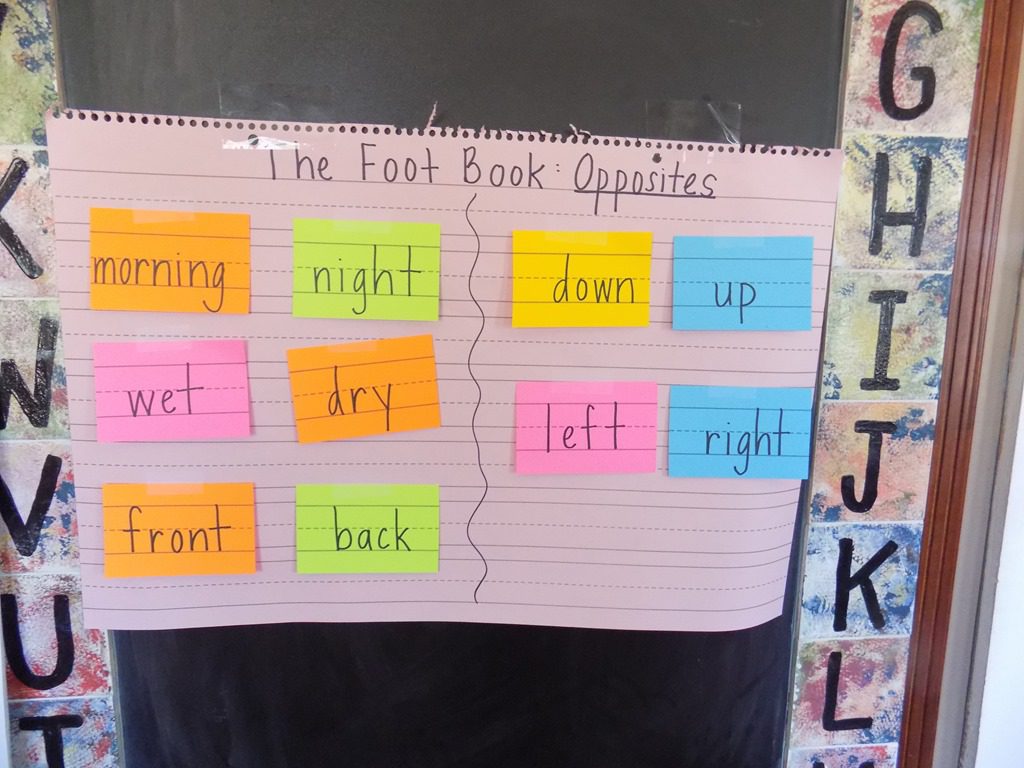 The Foot Book: Opposites
morning night
wet dry
front back
down up
left right
G
H
I
J
K
L
W
V
U
T